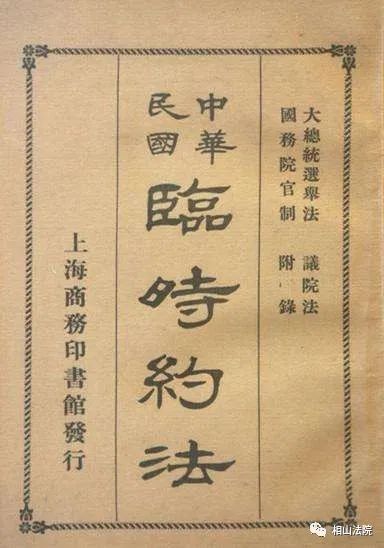 大總統選舉法 議院法
國務院官制 附錄
中華
民國
臨時約法
上海商務印書館發行
相山法院